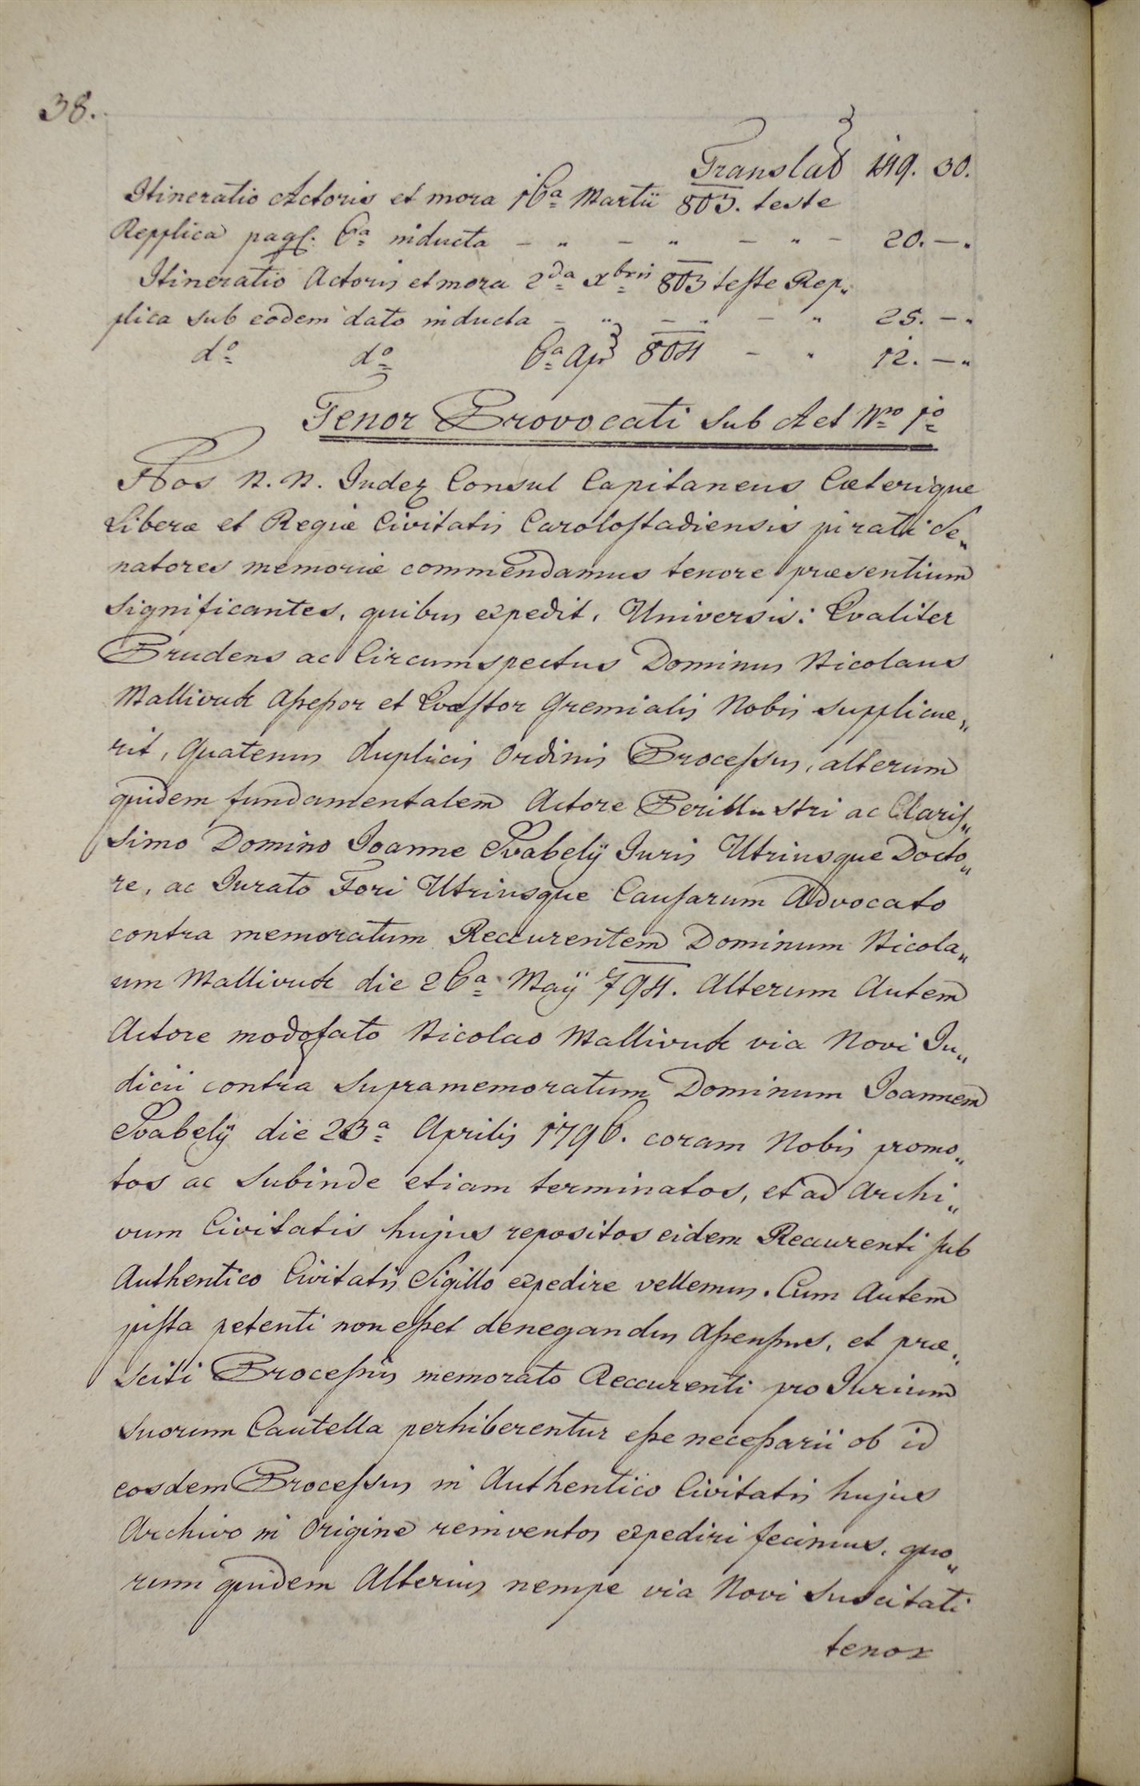 38.
Translat 149. 30.
Itineratio Actoris et mora 16a Martii 803. teste
Repplica pagl. 6a inducta – „ – „ – „ – 20. –.
Itineratio Actoris et mora 2da Xbris 803 teste Rep„
plica sub eodem dato inducta – „ – „ – „ 25. –.
do do 6a Apr 804 – „ 12. –„
Tenor Provocati sub Act Nro 1o
Nos N. N. Judex Consul Capitaneus Cæterique
Liberæ et Regiæ Civitatis Carolostadiensis jurati Se„
natores memoriæ commendamus tenore præsentium
significantes, quibus expedit, Universis: Qvaliter
Prudens ac Circumspectus Dominus Nicolaus
Mallivuk Assessor et Qvæstor Gremialis Nobis supplicue„
rit, Quatenus duplicis Ordinis Processus, alterum
quidem fundamentalem Actore Perillustri ac Claris„
simo Domino Joanne Svabelÿ Juris Utriusque Docto„
re, ac Jurato Fori Utriusque Causarum Advocato
contra memoratum Reccurentem Dominum Nicola„
um Mallivuk die 26a Maÿ 794. Alterum Autem
Actore modofato Nicolao Mallivuk via Novi Ju„
dicii contra supramemoratum Dominum Joannem
Svabelÿ die 23a Aprilis 1796. coram Nobis promo„
tos ac subinde etiam terminatos, et ad Archi„
vum Civitatis hujus repositos eidem Reccurenti sub
Authentico Civitatis Sigillo expedire vellemus. Cum Autem
justa petenti non esset denegandus Assensus, et præ„
sciti Processus memorato Reccurenti pro Jurium
suorum Cautella perhiberentur esse necessarii ob id
eosdem Processus in Authentico Civitatis hujus
Archivo in Origine reinventos expediri fecimus, quo„
rum quidem Alterius nempe via Novi suscitati
tenor